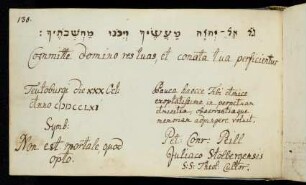 130.
גל אל־יהוה מעשיך ויכנו מחשבתיך:
Committe domino res tuas, et conata tua perficientur
Teutoburgi die XXX Oct
Anno MDCCLXI
Symb.
Non est mortale quod
opto.
Pauca haecce Tibi Amice
exoptatissime in perpetuam
amicitiae, observantiaeque
memoriam adpingere voluit.
Pet: Conr: Peill
Juliaco Stolbergensis
S:S: Theol: Cultor.